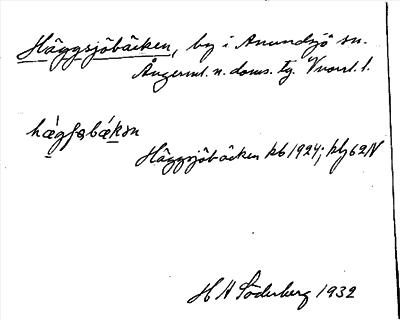 Häggsjöbäcken, by i Anundsjö sn.
Ångerml. n. doms. tg. Vnorrl. l.
hǽgʃəbǽkən
Häggsjöbäcken kb 1924; kbl 62 N
H H Söderberg 1932